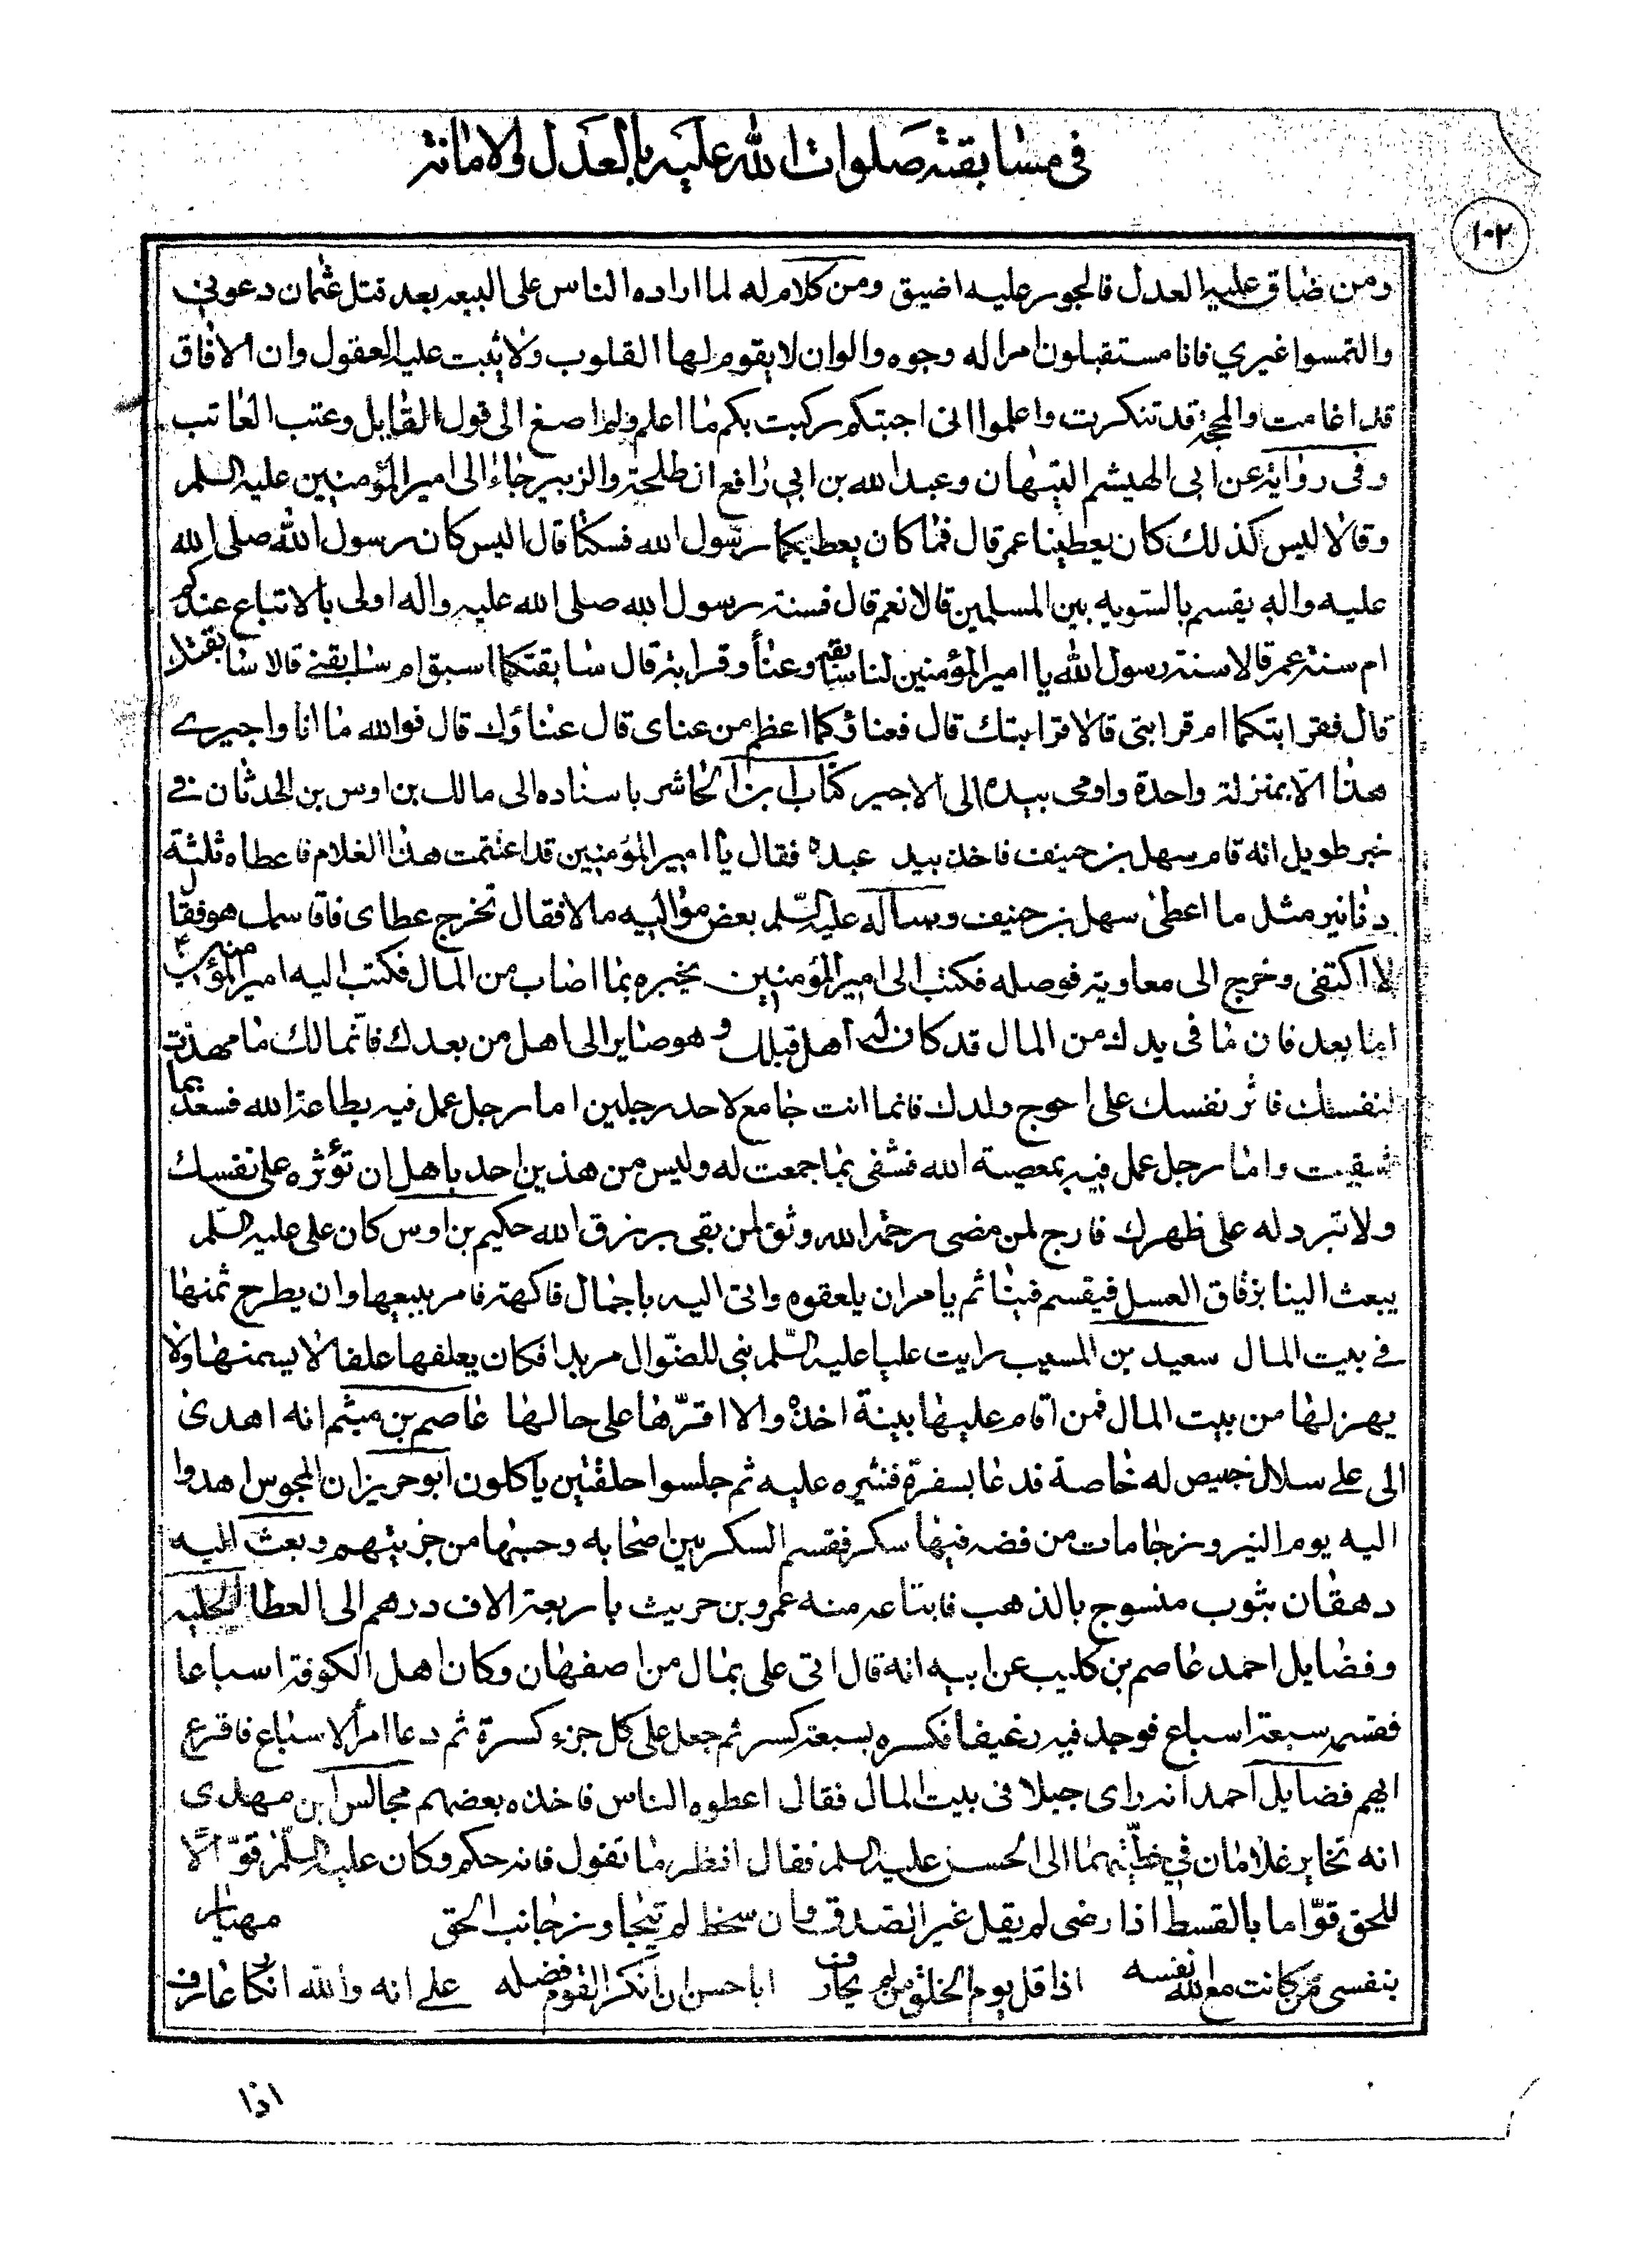 في مسابقته صلوات الله عليه بالعدل والامانة
١٠٢
ومن ضاق عليه العدل فالجور عليه اضيق ومن كلام له لما اراده الناس على البيعه بعد قتل عثمان دعوني
والتمسوا غيري فانا مستقبلون امرا له وجوه والوان لا يقوم لها القلوب ولا يثبت عليه العقول وان الافاق
قد اغامت والمحجة قد تنكرت واعلموا اني اجبتكم ركبت بكم ما اعلم ولم اصغ الى قول القايل وعتب العاتب
وفي رواية عن ابي الهيثم التيهان وعبد الله بن ابي رافع ان طلحة والزبير جاءا الى امير المؤمنين عليه السلم
وقالا ليس كذلك كان يعطينا عمر قال فما كان يعطيكما رسول الله فسكتا قال اليس كان رسول الله صلى الله
عليه واله يقسم بالسويه بين المسلمين قالا نعم قال فسنة رسول الله صلى الله عليه واله اولى بالاتباع عندكم
ام سنة عمر قالا سنة رسول الله يا امير المؤمنين لنا سابقة وعناء وقرابة قال سابقتكما اسبق ام سابقتي قالا سابقتك
قال فقرابتكما ام قرابتي قالا قرابتك قال فعناؤكما اعظم من عناي قال عناؤك قال فوالله ما انا واجيري
هذا الا بمنزلة واحدة واومى بيده الى الاجير كتاب ابن الحاشر باسناده الى مالك بن اوس بن الحدثان في
خبر طويل انه قام سهل بن حنيف فاخذ بيد عبده فقال يا امير المؤمنين قد اعتقت هذا الغلام فاعطاه ثلثة
دنانير مثل ما اعطى سهل بن حنيف وساله عليه السّلم بعض مواليه مالا فقال تخرج عطاي فاقاسمك هو فقال
لا اكتفى وخرج الى معاوية فوصله فكتب الى امير المؤمنين يخبره بما اصاب من المال فكتب اليه امير المؤمنين
اما بعد فان ما في يدك من المال قد كان له اهل قبلك وهو صاير الى اهل من بعدك فانّما لك ما مهدت
لنفسك فاثر نفسك على احوج ولدك فانما انت جامع لاحد رجلين اما رجل عمل فيه بطاعة الله فسعد بما
شقيت واما رجل عمل فيه بمعصية الله فشقى بما جمعت له وليس من هذين احد باهل ان تؤثره على نفسك
ولا تبرد له على ظهرك فارج لمن مضى رحمة الله وثق لمن بقى برزق الله حكيم بن اوس كان علي عليه السّلم
يبعث الينا بزقاق العسل فيقسم فينا ثم يامر ان يلعقوه واتى اليه باجمال فاكهة فامر ببيعها وان يطرح ثمنها
في بيت المال سعيد بن المسيب رايت عليا عليه السّلم بنى للضوّال مربدا فكان يعلفها علفا لا يسمنها ولا
يهزلها من بيت المال فمن اقام عليها بينة اخذه والا اقرّها على حالها عاصم بن ميثم انه اهدى
الى علي سلال خبيص له خاصة فدعا بسفرة فنثره عليه ثم جلسوا حلقتين ياكلون ابو حريز ان المجوس اهدوا
اليه يوم النيروز جامات من فضه فيها سكر فقسم السكر بين اصحابه وحسبها من جزيتهم وبعث اليه
دهقان بثوب منسوج بالذهب فابتاعه منه عمرو بن حريث باربعة الاف درهم الى العطا الحليه
وفضايل احمد عاصم بن كليب عن ابيه انه قال اتى علي بمال من اصفهان وكان اهل الكوفة اسباعا
فقسمه سبعة اسباع فوجد فيه رغيفا فكسره بسبعة كسر ثم جعل على كل جزء كسرة ثم دعا امراء الاسباع فاقرع
ايهم فضايل احمد انه راى حبلا في بيت المال فقال اعطوه الناس فاخذه بعضهم مجالس ابن مهدى
انه تخاير غلامان في خطّيهما الى الحسن عليه السلم فقال انظر ما تقول فانه حكم وكان عليه السّلم قوّالا
للحق قوّاما بالقسط اذا رضى لم يقل غير الصدق وان سخط لم يتجاوز جانب الحق مهيار
بنفسي من كانت مع الله نفسه اذا قل يوم الخلق من لم يحارف ابا حسن ان انكر القوم فضله على انه والله انكار عارف
اذا